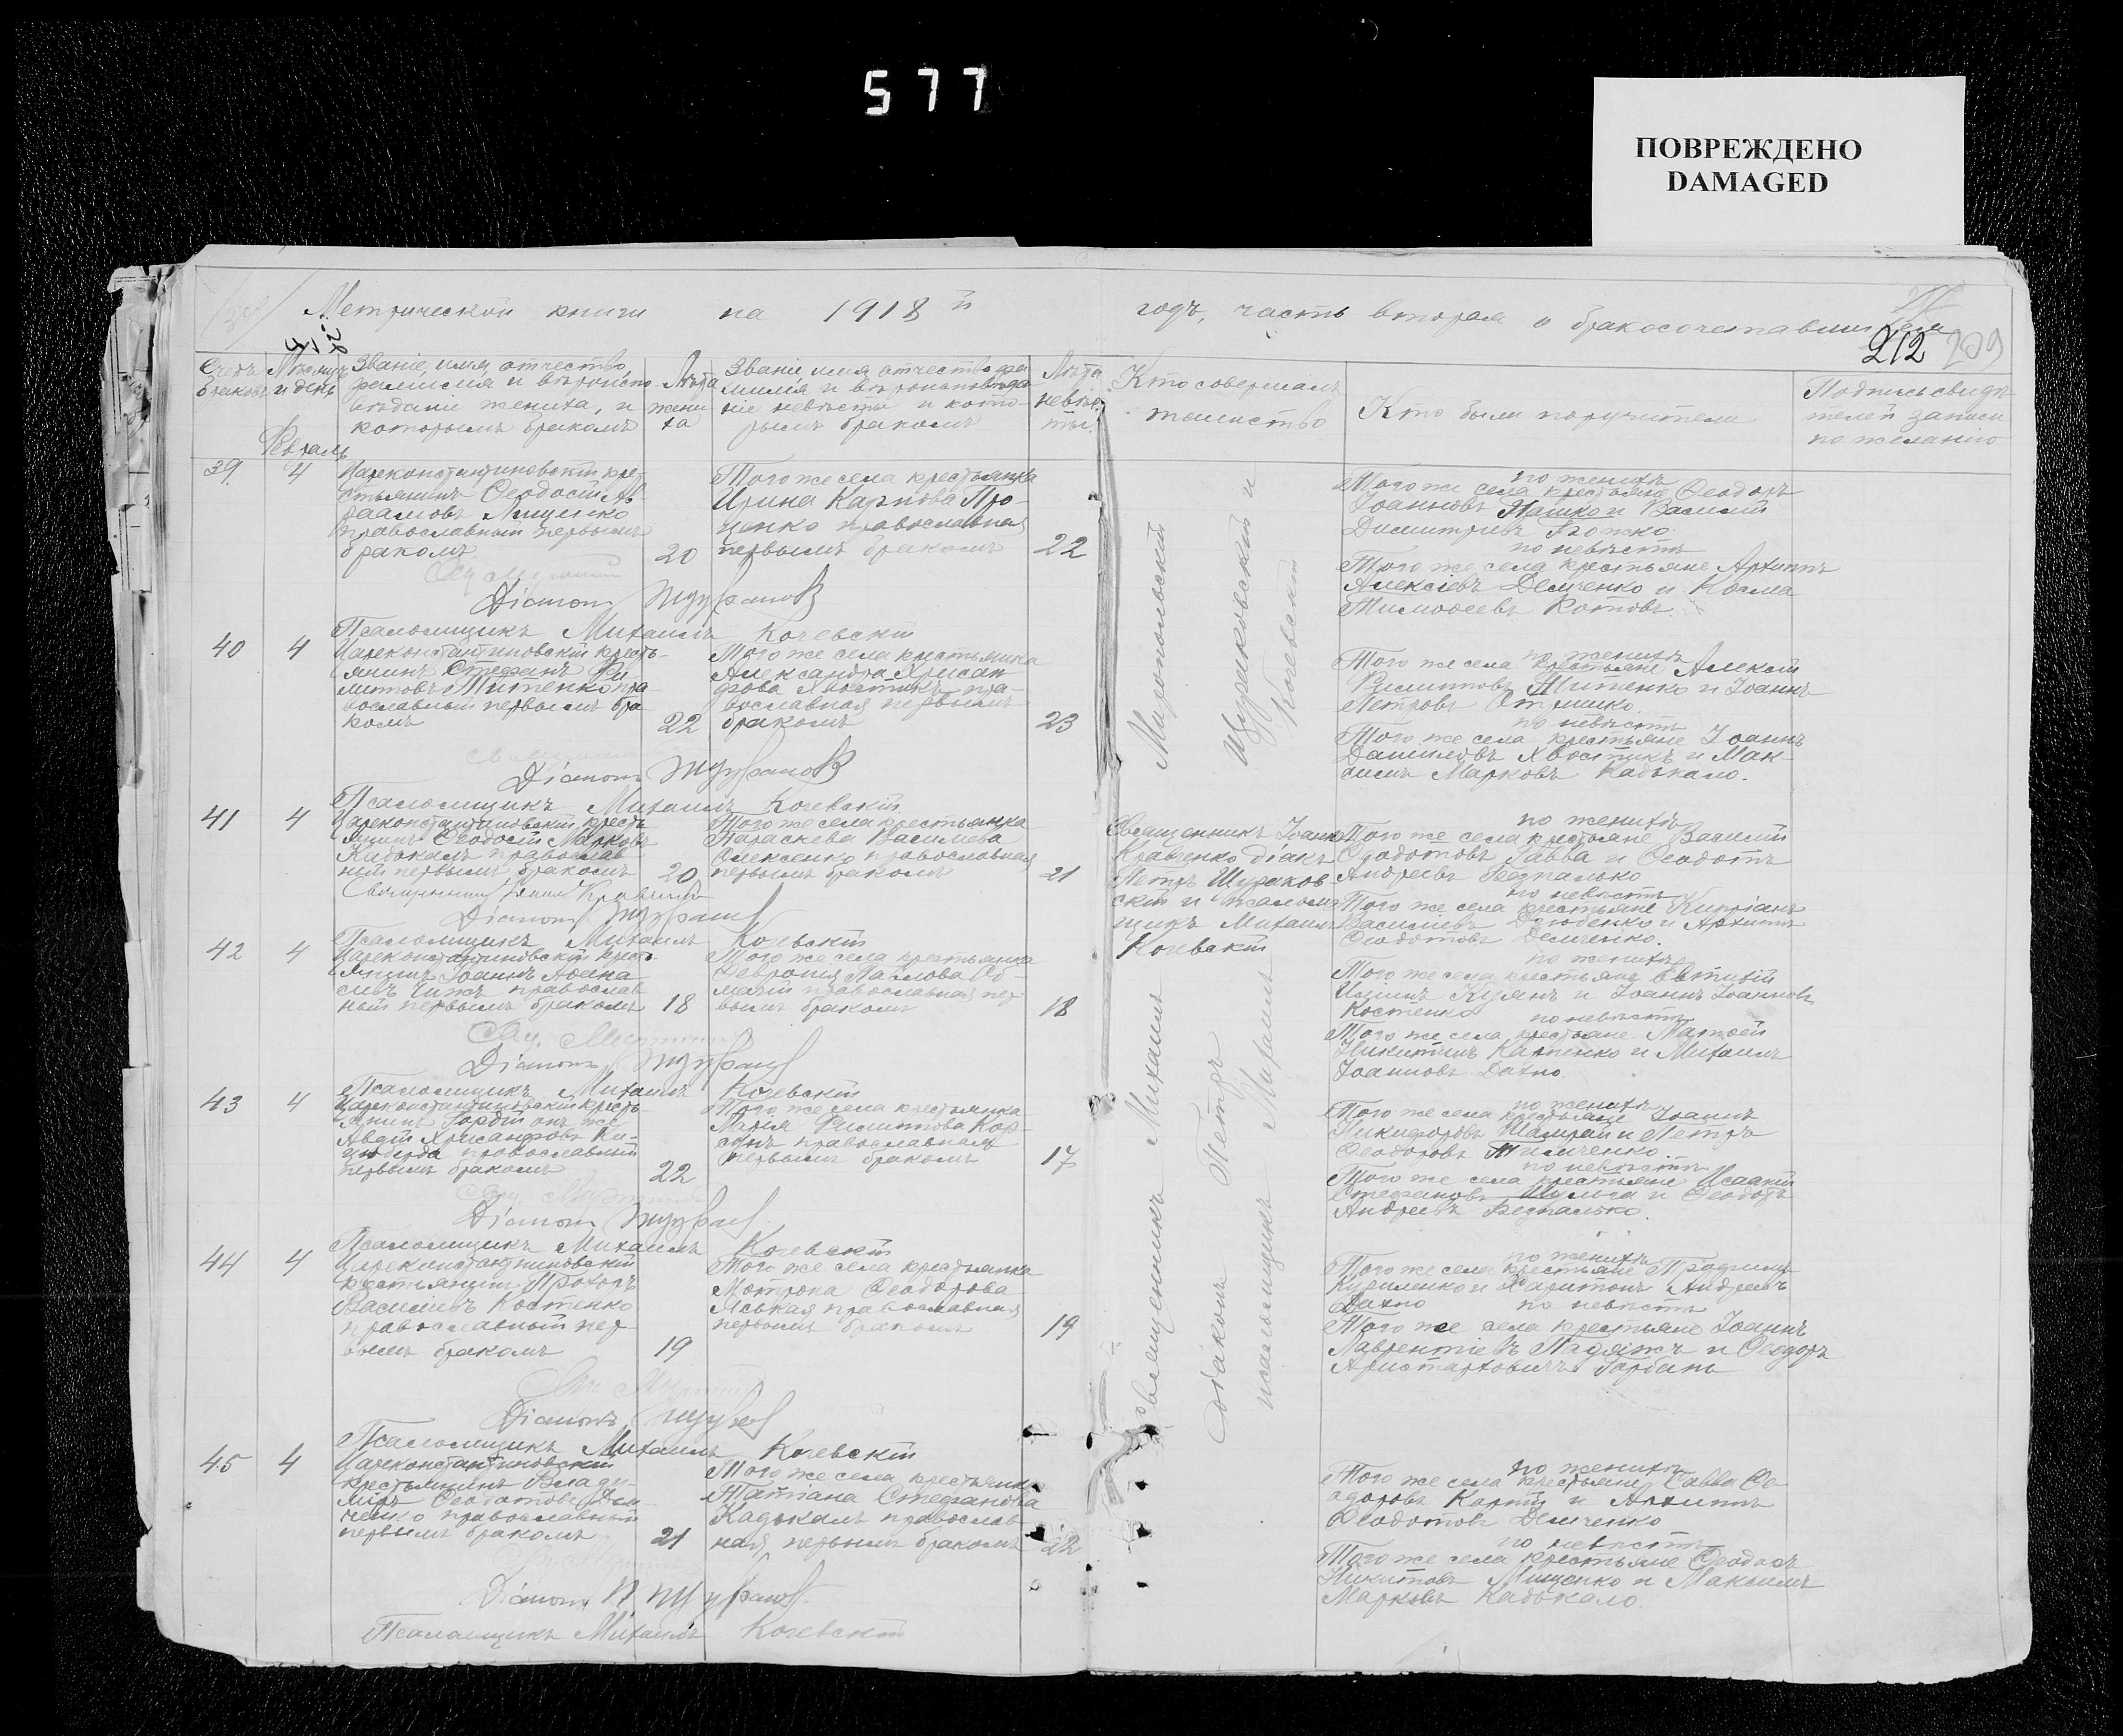 577
ПОВРЕЖДЕНО
DAMAGED
Метрической книги на 1918 й
годъ, часть вторая о бракосочетавшихся
212 209
Счетъ браковъ
Мѣсяцъ и день
Званіе, имя, отчество,
фамилія и вѣроиспо-
вѣданіе жениха, и
которымъ бракомъ
Лѣта
жени
ха
Званіе, имя отчество фа
милія и вѣроисповѣда
ніе невѣсты и кото-
рымъ бракомъ
Лѣта
невѣс
ты.
Кто совершалъ
таинство
Кто были поручители
Подпись свидѣ
телей записи
по желанію
Февраль
39 4
Цареконстантиновскій кре-
стьянинъ Феодосій Ав-
раамовъ Мищенко
православный первымъ
бракомъ
20
Того же села крестьянка
Ирина Карпова Про-
ценко православная
первымъ бракомъ
22
по женихѣ
Того же села крестьяне Феодоръ
Іоанновъ Пашко и Василій
Димитріевъ
по невѣстѣ
Того же села крестьяне Архиппъ
Алексіевъ Демченко и Косма
Тимофеевъ Котовъ.
Діаконъ
Псаломщикъ Михаилъ Кочевскій
40 4
Цареконстантиновскій кресть-
янинъ Стефанъ Фи
липповъ Титенко пра-
вославный первымъ бра
комъ
22
Того же села крестьянка
Александра Хрисан
фова Хвостикъ пра-
вославная первымъ
бракомъ
23
по женихѣ
Того же села крестьяне Алексій
Филипповъ Титенко и Іоаннъ
Петровъ
по невѣстѣ
Того же села крестьяне Іоаннъ
Даниловъ Хвостикъ и Мак-
симъ Марковъ Кадькало.
Діаконъ
Псаломщикъ Михаилъ Кочевскій
41 4
Цареконстантиновскій кресть
янинъ Феодосій Марковъ
Кадькалъ православ
ный первымъ бракомъ
20
Того же села крестьянка
Параскева Василіева
Олексенко православная
первымъ бракомъ
21
Священникъ Іоаннъ
Кравченко діаконъ
Петръ Шураков-
скій и псалом
щикъ Михаилъ
Кочевскій
по женихѣ
Того же села крестьяне Василій
Феодотовъ Савва и Феодотъ
Андреевъ Безпалько
по невѣстѣ
Того же села крестьяне Кипріанъ
Василіевъ и Архиппъ
Феодотовъ Демченко.
Священникъ Іоаннъ Кравченко
Діаконъ
Псаломщикъ Михаилъ Кочевскій
42 4
Цареконстантиновскій кресть
янинъ Іоаннъ Афана
сіевъ Чижъ православ
ный первымъ бракомъ
18
Того же села крестьянка
Феврония Павлова
православная пер
вымъ бракомъ
18
по женихѣ
Того же села крестьяне Евтихій
Куянъ и Іоаннъ Іоанновъ
Костенко
по невѣстѣ
Того же села крестьяне Матфей
Никитинъ Карпенко и Михаилъ
Іоанновъ Дахно.
Діаконъ
Псаломщикъ Михаилъ Кочевскій
43 4
Цареконстантиновскій кресть
янинъ Гордій онъ же
Авдій Хрисанфовъ
православный
первымъ бракомъ
22
Того же села крестьянка
Марія Филиппова Кор-
сунъ православная
первымъ бракомъ
17
по женихѣ
Того же села крестьяне Іоаннъ
Никифоровъ Шамрай и Петръ
Феодоровъ Тимченко.
по невѣстѣ
Того же села крестьяне Исаакій
Стефановъ Шульга и Феодотъ
Андреевъ Безпалько.
Діаконъ
Псаломщикъ Михаилъ Кочевскій
44 4
Цареконстантиновскій
крестьянинъ Прохоръ
Василіевъ Костенко
православный пер-
вымъ бракомъ
19
Того же села крестьянка
Мотрона Феодорова
православная
первымъ бракомъ
19
по женихѣ
Того же села крестьяне Трофимъ
Куриленко и Харитонъ Андреевъ
Дахно
по невѣстѣ
Того же села крестьяне Іоаннъ
Лаврентіевъ и Феодоръ
Аристарховичъ Горбань
Діаконъ
Псаломщикъ Михаилъ Кочевскій
45 4
Цареконстантиновскій
крестьянинъ Влади-
міръ Феодотовъ Дем
ченко православный
первымъ бракомъ
21
Того же села крестьянка
Татіана Стефанова
Кадькалъ православ
ная первымъ бракомъ
22
по женихѣ
Того же села крестьяне Савва Фе
одоровъ и Архиппъ
Феодотовъ Демченко
по невѣстѣ
Того же села крестьяне Феодосъ
Никитовъ Мищенко и Максимъ
Марковъ Кадькало.
Діаконъ
Псаломщикъ Михаилъ Кочевскій
Священникъ Михаилъ Миропольскій
діаконъ Петръ Шураковскій и
псаломщикъ Михаилъ Кочевскій